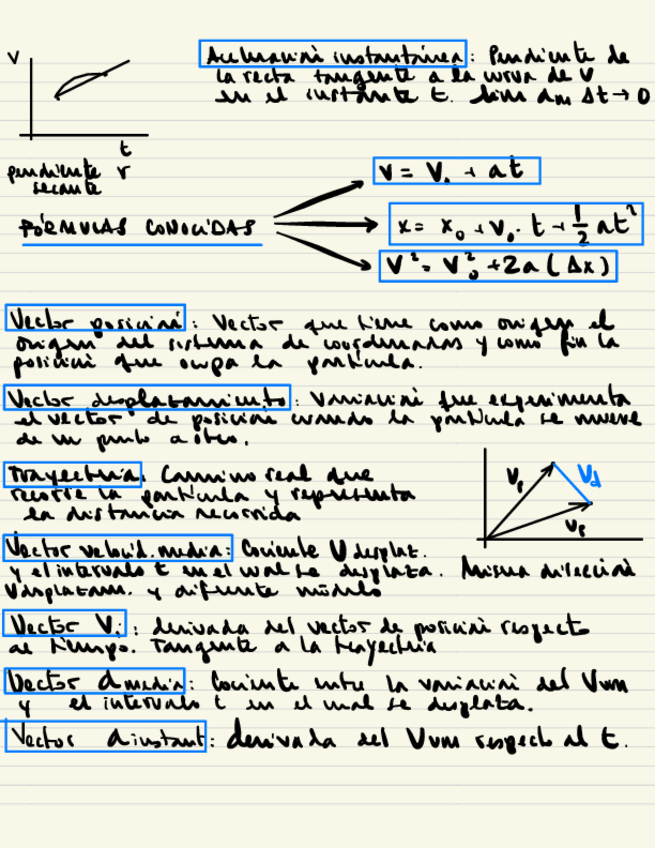 V
Aceleración instantánea: Pendiente de
la recta tangente a la curva de v
en el instante t. lim am Δt → 0
t
pendiente r
secante
v = v₀ + at
FÓRMULAS CONOCIDAS
x = x₀ + v₀ · t + 1/2 at²
v² = v₀² + 2a (Δx)
Vector posición: Vector que tiene como origen el
origen del sistema de coordenadas y como fin la
posición que ocupa la partícula.
Vector desplazamiento: Variación que experimenta
el vector de posición cuando la partícula se mueve
de un punto a otro.
Trayectoria. Camino real que
recorre la partícula y representa
la distancia recorrida
Vd
Vector velocid. media: Cociente V desplaz.
y el intervalo t en el cual se desplaza. Misma dirección
Vdesplazam. y diferente módulo
Vector Vi: derivada del vector de posición respecto
al tiempo. Tangente a la trayectoria
Vector a media: Cociente entre la variación del Vvm
y el intervalo t en el cual se desplaza.
Vector a instant: derivada del Vvm respecto al t.